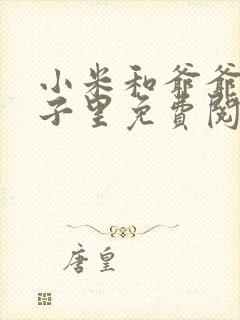 小米和爷爷
子里免費閱
唐皇